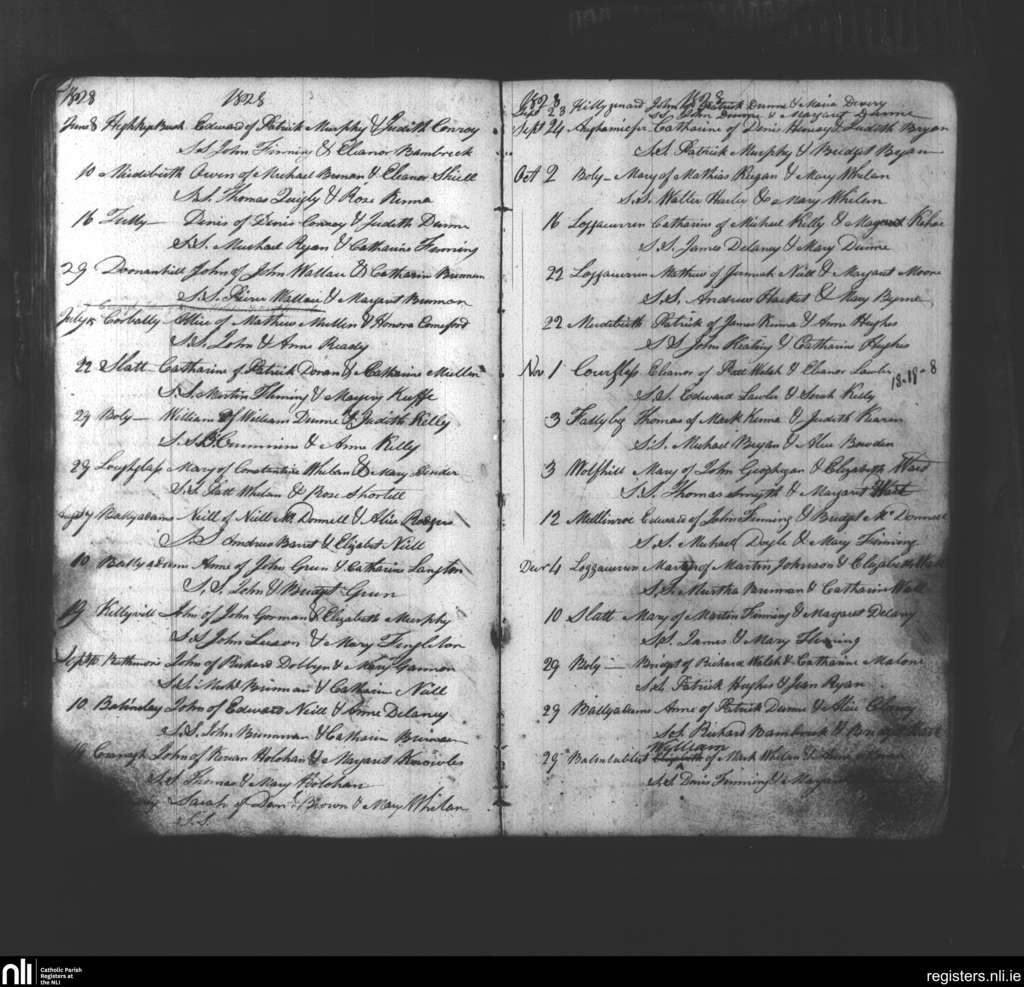 1828 1828
June 8 High Bush Edward of Patrick Murphy & Judith Conroy
S.S. John Finning & Eleanor Bambrick
10 Owen of Michael Brenan & Eleanor Shiell
S.S. Thomas Quigly & Rose Kenna
16 Tully Denis of Denis Conroy & Judith Dunne
S.S. Michael Ryan & Catharine Fenning
29 Doonanhill John of John Wallace & Catharin Brenan
S.S. Pierce Wallace & Margaret Brennan
July Corbally Alice of Mathew Mullin & Honora Comeford
S.S. John & Anne Ready
22 Slatt Catharine of Patrick Doran & Catharine Mullen
S.S. Martin Fleming & Keeffe
29 Boly William of William Dunne & Judith Kelly
S.S. Cummins & Anne Kelly
29 Loughglass Mary of Constantine Whelan & Mary
S.S. Patt Whelan & Rose Shortell
Ballyadams Neill of Neill Mc Donnell & Alice Rodgers
S.S. Andrew Barret & Elizabet Neill
10 Ballyadams Anne of John Green & Catharine Langton
S.S. John & Bridget Green
19 Killyvill of John Gorman & Elizabeth Murphy
S.S. John Leeson & Mary Fingleton
Sept John of Richard Dobbyn & Mary Gannon
S.S. Brennan & Catharin Neill
10 John of Edward Neill & Anne Delaney
S.S. John Brennan & Catharin Brenan
John of Kieran Holohan & Margaret Knowles
S.S. Thomas & Mary Holohan
Sarah of Brown & Mary Whelan
S.S.
1828 1828
Sept 23 John of Patrick Dunne & Maria Devery
S.S. John Dunne & Margaret Dunne
Sept 24 Catharine of Denis & Judith Bryan
S.S. Patrick Murphy & Bridget Bryan
Oct 2 Boly Mary of Mathias Regan & Mary Whelan
S.S. Walter & Mary Whelan
16 Catharine of Michael Kelly & Margaret
S.S. James Delaney & Mary Dunne
22 Mathew of Jeremiah Neill & Margaret Moore
S.S. Andrew Hacket & Mary Byrne
22 Patrick of James Kenna & Anne Hughes
S.S. John Keating & Catharine Hughes
Nov 1 Eleanor of Patt Welsh & Eleanor Lawler
18-19-8
S.S. Edward Lawler & Sarah Kelly
3 Fallybeg Thomas of Mark Kenna & Judith
S.S. Michael Bryan & Alice Bowden
3 Wolfhill Mary of John Geoghegan & Elizabeth Ward
S.S. Thomas Smyth & Margaret Ward
12 Mullinroe Edward of John Finning & Bridget Mc Donnell
S.S. Michael Doyle & Mary Finning
Decr 4 of Martin Johnson & Elizabeth Wall
S.S. Murtha Brennan & Catharin Wall
10 Slatt Mary of Martin Finning & Margaret Delany
S.S. James & Mary Fleming
29 Boly Bridget of Richard Walsh & Catharine Malone
S.S. Patrick Hughes & Jean Ryan
29 Ballyadams Anne of Patrick Dunne & Alice Clancy
S.S. Richard Bambrick & Bridget
William
29 of Mark Whelan &
S.S. Denis Finning & Margaret
nli Catholic Parish
Registers at
the NLI
registers.nli.ie